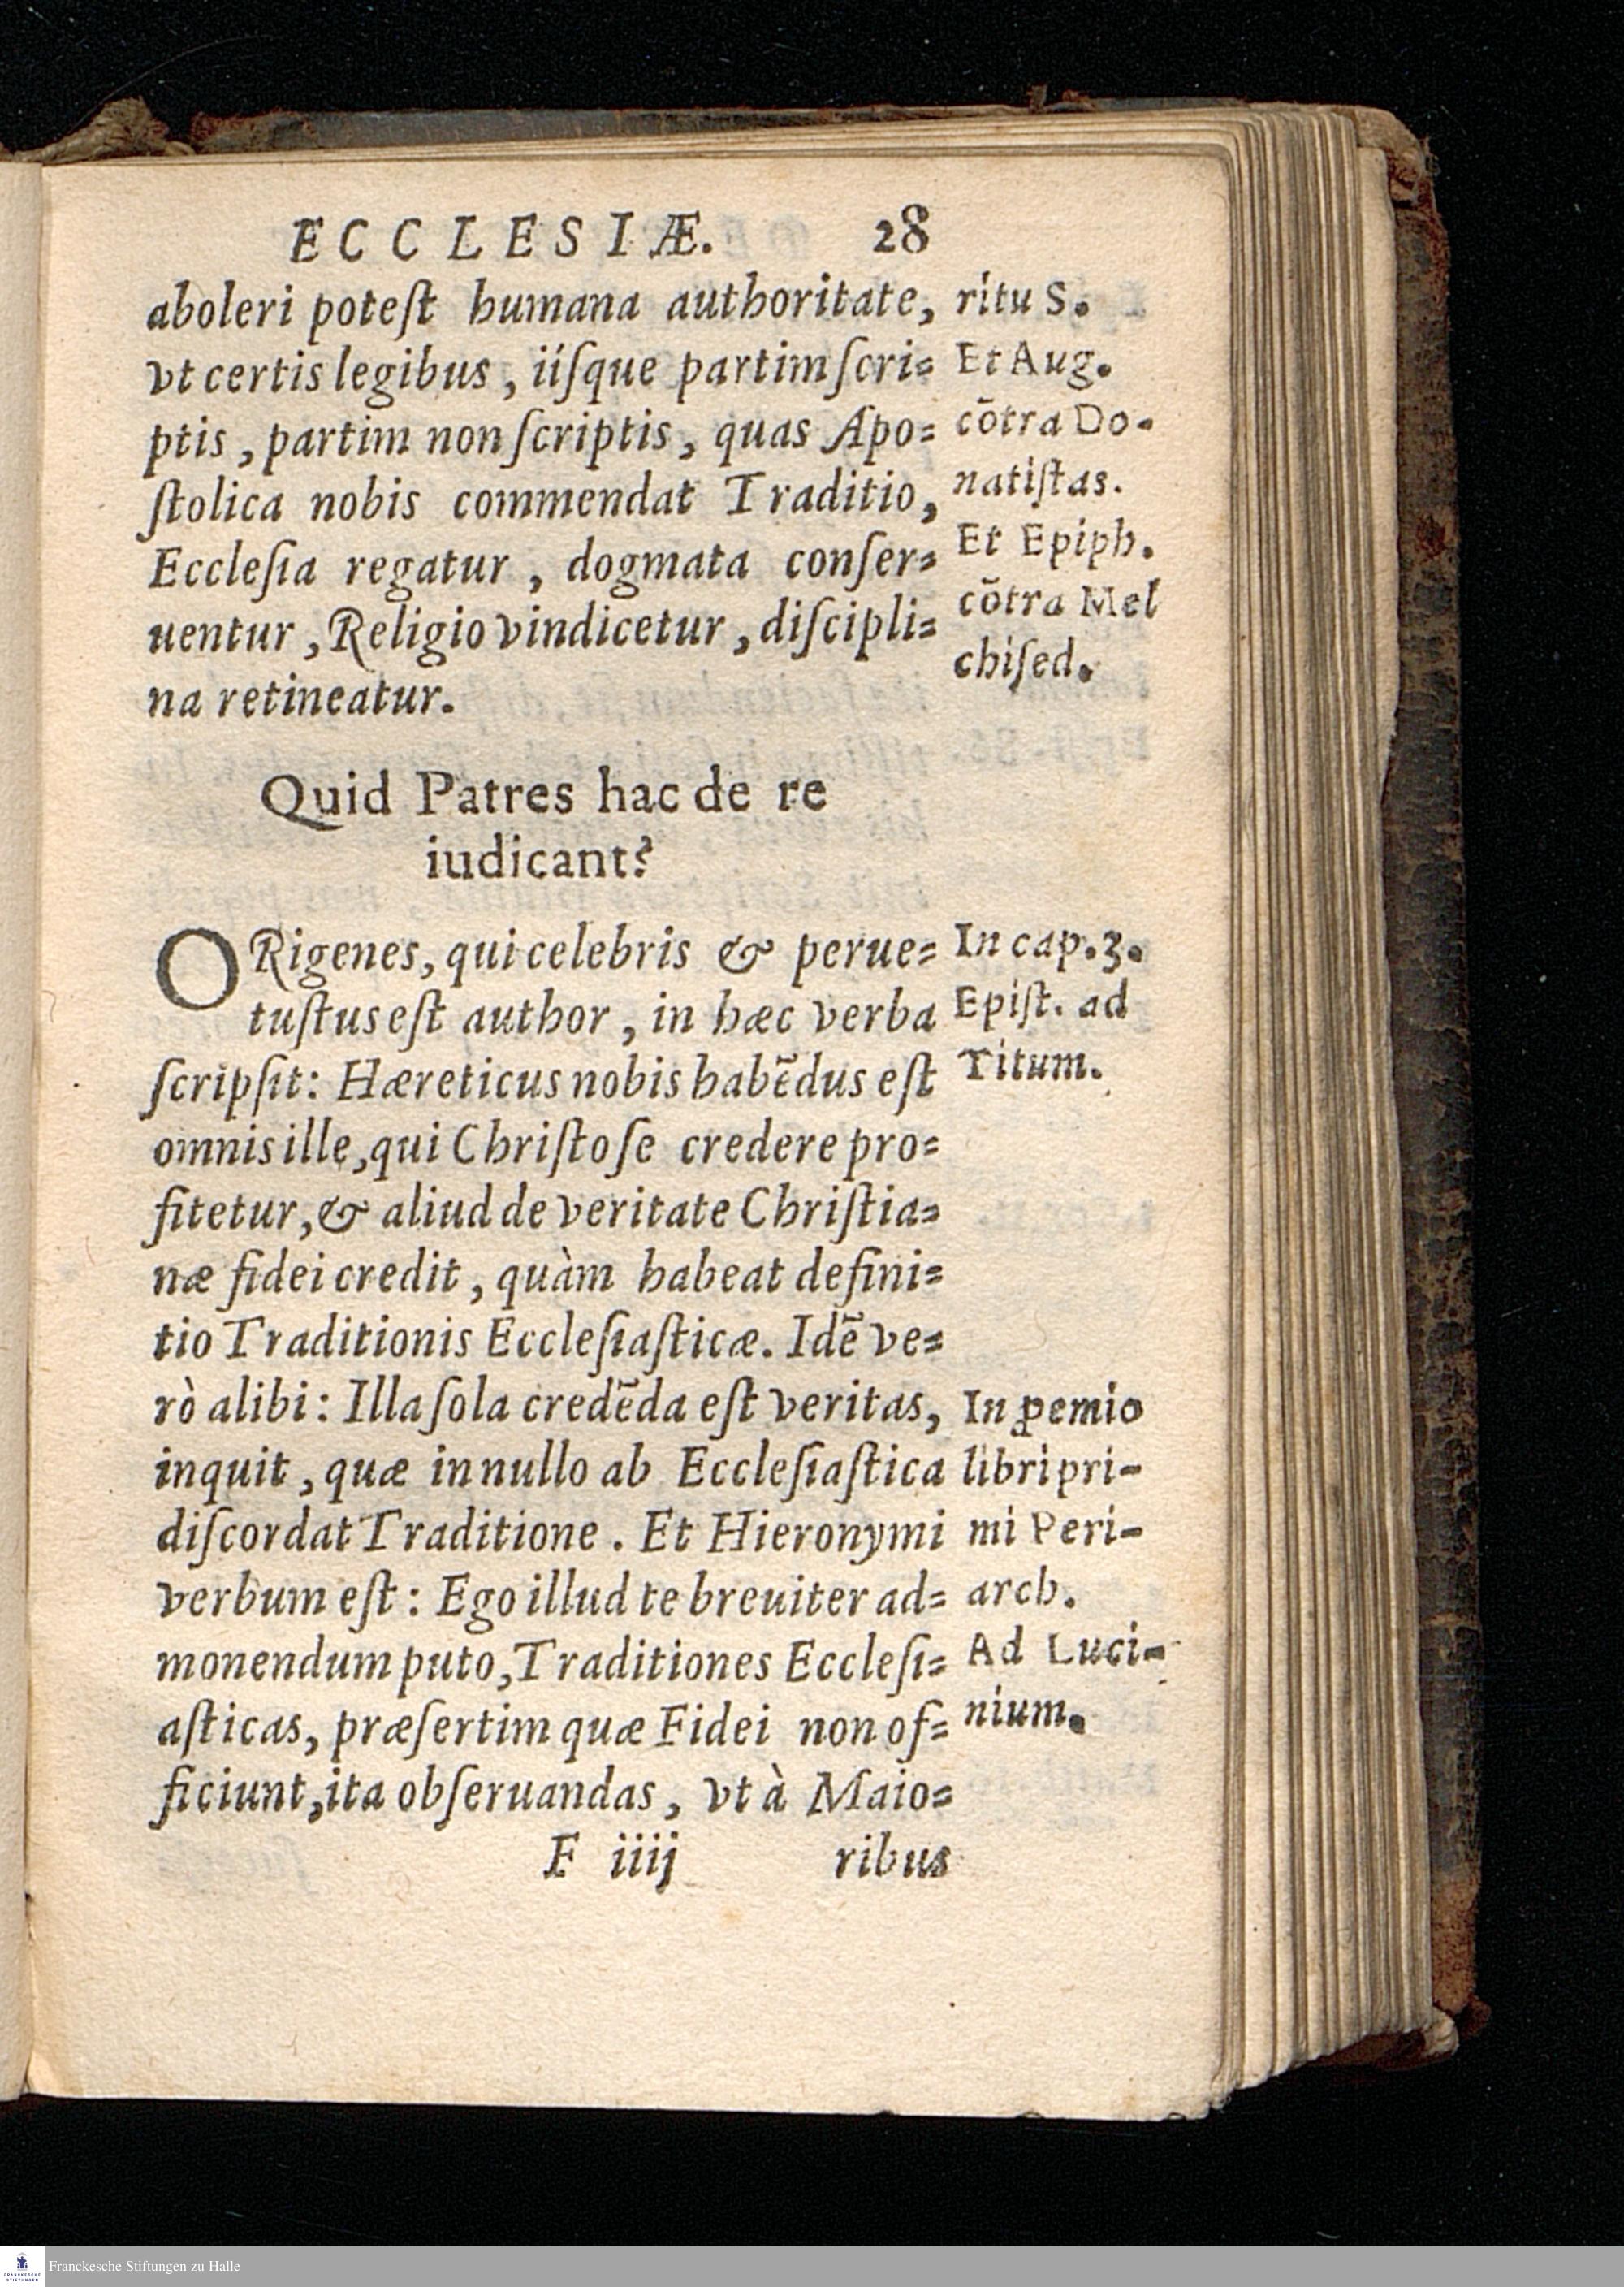 ECCLESIÆ. 28
aboleri poteſt humana authoritate,
vt certis legibus, iiſque partim ſcri=
ptis, partim non ſcriptis, quas Apo=
ſtolica nobis commendat Traditio,
Eccleſia regatur, dogmata conſer=
uentur, Religio vindicetur, diſcipli=
na retineatur.
ritu S.
Et Aug.
cōtra Do-
natiſtas.
Et Epiph.
cōtra Mel
chiſed.
Quid Patres hac de re
iudicant?
ORigenes, qui celebris & perue=
tuſtus eſt author, in hæc verba
ſcripſit: Hæreticus nobis habēdus eſt
omnis ille, qui Chriſto ſe credere pro=
fitetur, & aliud de veritate Chriſtia=
næ fidei credit, quàm habeat defini=
tio Traditionis Eccleſiaſticæ. Idē ve=
rò alibi: Illa ſola credēda eſt veritas,
inquit, quæ in nullo ab Eccleſiaſtica
diſcordat Traditione. Et Hieronymi
verbum eſt: Ego illud te breuiter ad=
monendum puto, Traditiones Eccleſi=
aſticas, præſertim quæ Fidei non of=
ficiunt, ita obſeruandas, vt à Maio=
In cap. 3.
Epiſt. ad
Titum.
In ꝓemio
libri pri-
mi Peri-
arch.
Ad Luci-
nium.
F iiij ribus
FRANCKESCHE
STIFTUNGEN
Franckesche Stiftungen zu Halle